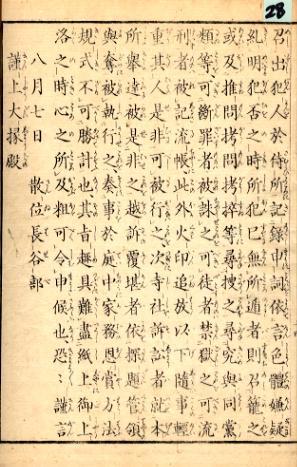 28
召出犯人於侍所記録申詞依言色體嫌疑
糺明犯否之時所犯已無所遁者則召籠之
或及推問拷問拷捽等尋捜之尋究與同黨
類等可斷罪者被誅之可徒者禁獄之可流
刑者被記流帳此外火印追放以下隨事輕
重其人是非可被行之次寺社訴訟者就本
所擧達被是非之越訴覆堪者依探題管領
與奪被執行之奏事於庭中家務恩賞方法
規式不可勝計也其旨趣具難盡紙上御上
洛之時心之所及粗可令申候也恐〻謹言
八月七日　散位長谷部
謹上大掾殿